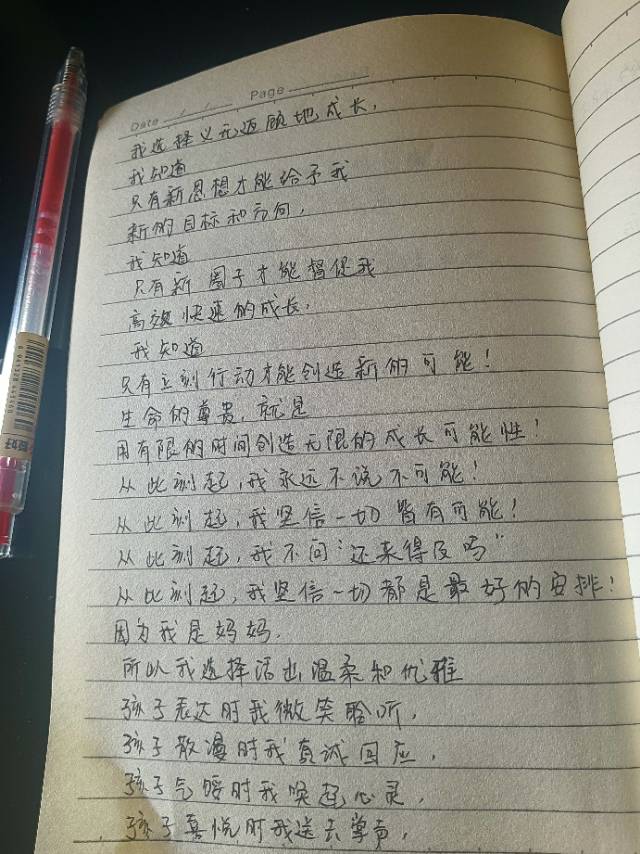 Date
Page
我选择义无返顾地成长,
我知道
只有新思想才能给予我
新的目标和方向,
我知道
只有新圈子才能督促我
高效快速的成长.
我知道
只有立刻行动才能创造新的可能!
生命的尊贵,就是
用有限的时间创造无限的成长可能性!
从此刻起,我永远不说不可能!
从此刻起,我坚信一切皆有可能!
从此刻起,我不问“还来得及吗”
从此刻起,我坚信一切都是最好的安排!
因为我是妈妈.
所以我选择活出温柔和优雅
孩子表达时我微笑聆听,
孩子散漫时我真诚回应,
孩子气馁时我唤起心灵,
孩子喜悦时我送去掌声,